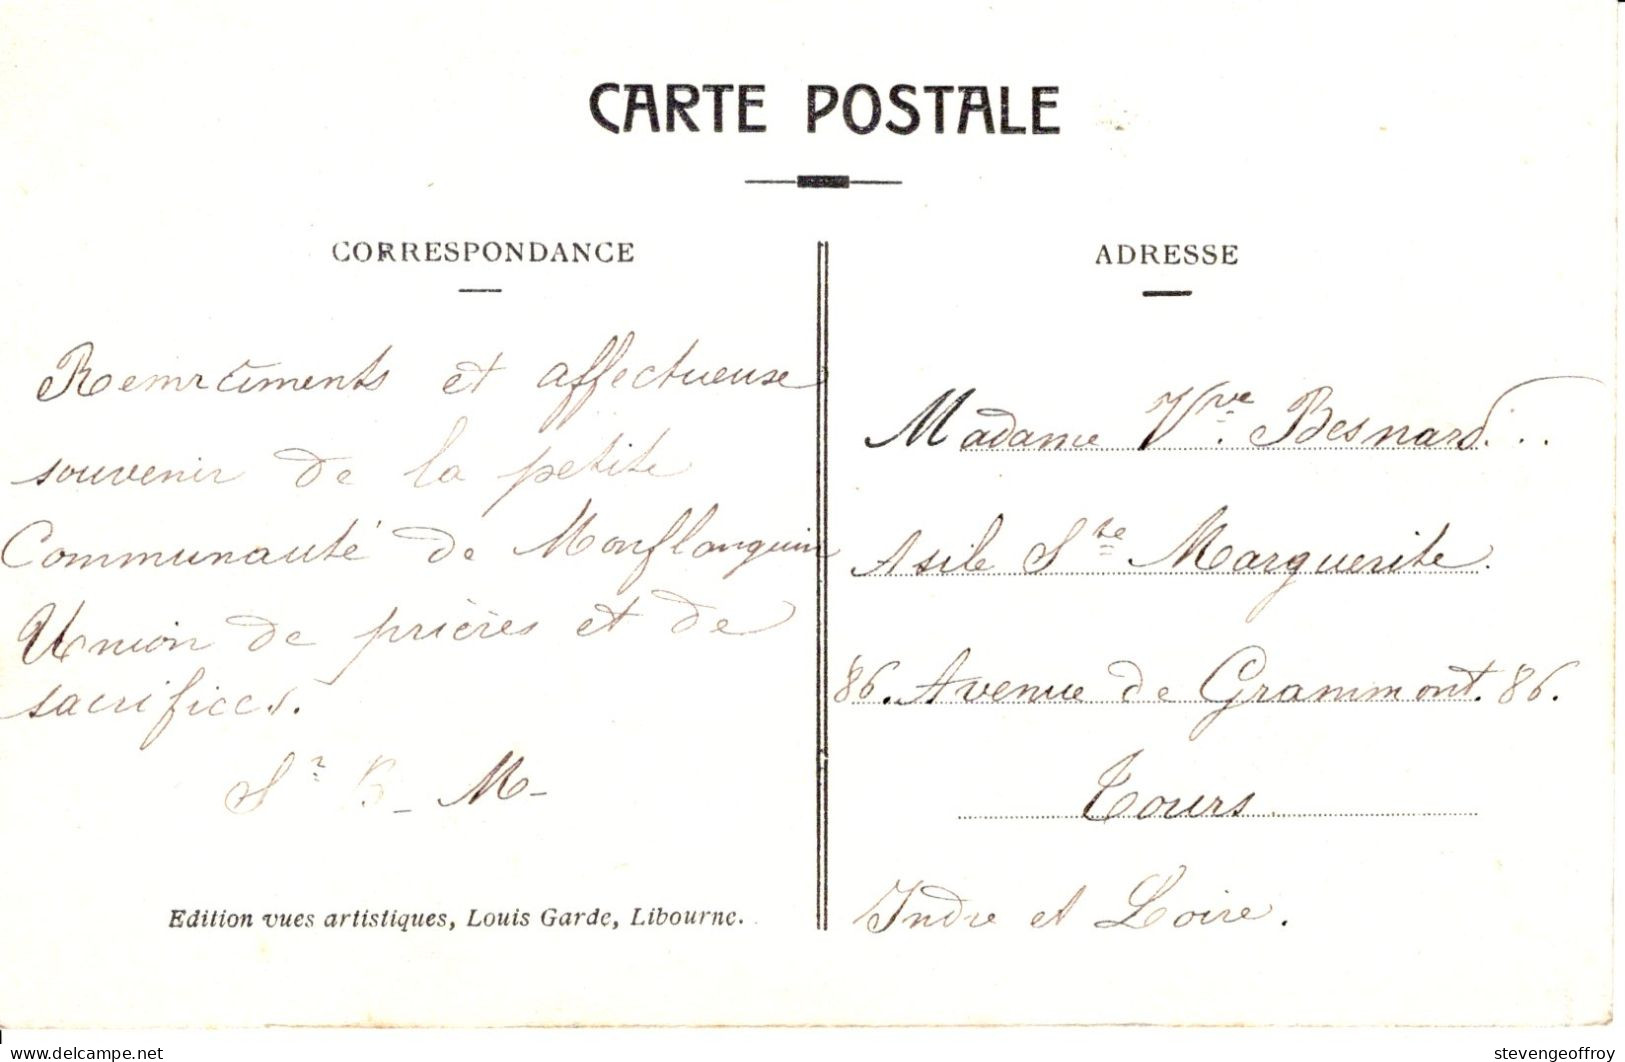 CARTE POSTALE
CORRESPONDANCE
Remrciments et affectueuse
souvenir de la petite
Communauté de Monflanquin
Union de prières et de
sacrifices.
Sr B - M -
Edition vues artistiques, Louis Garde, Libourne.
ADRESSE
Madame Vve. Besnard...
Asile Ste Marguerite.
86. Avenue de Grammont. 86.
Tours
Indre et Loire.
delcampe.net
stevengeoffroy